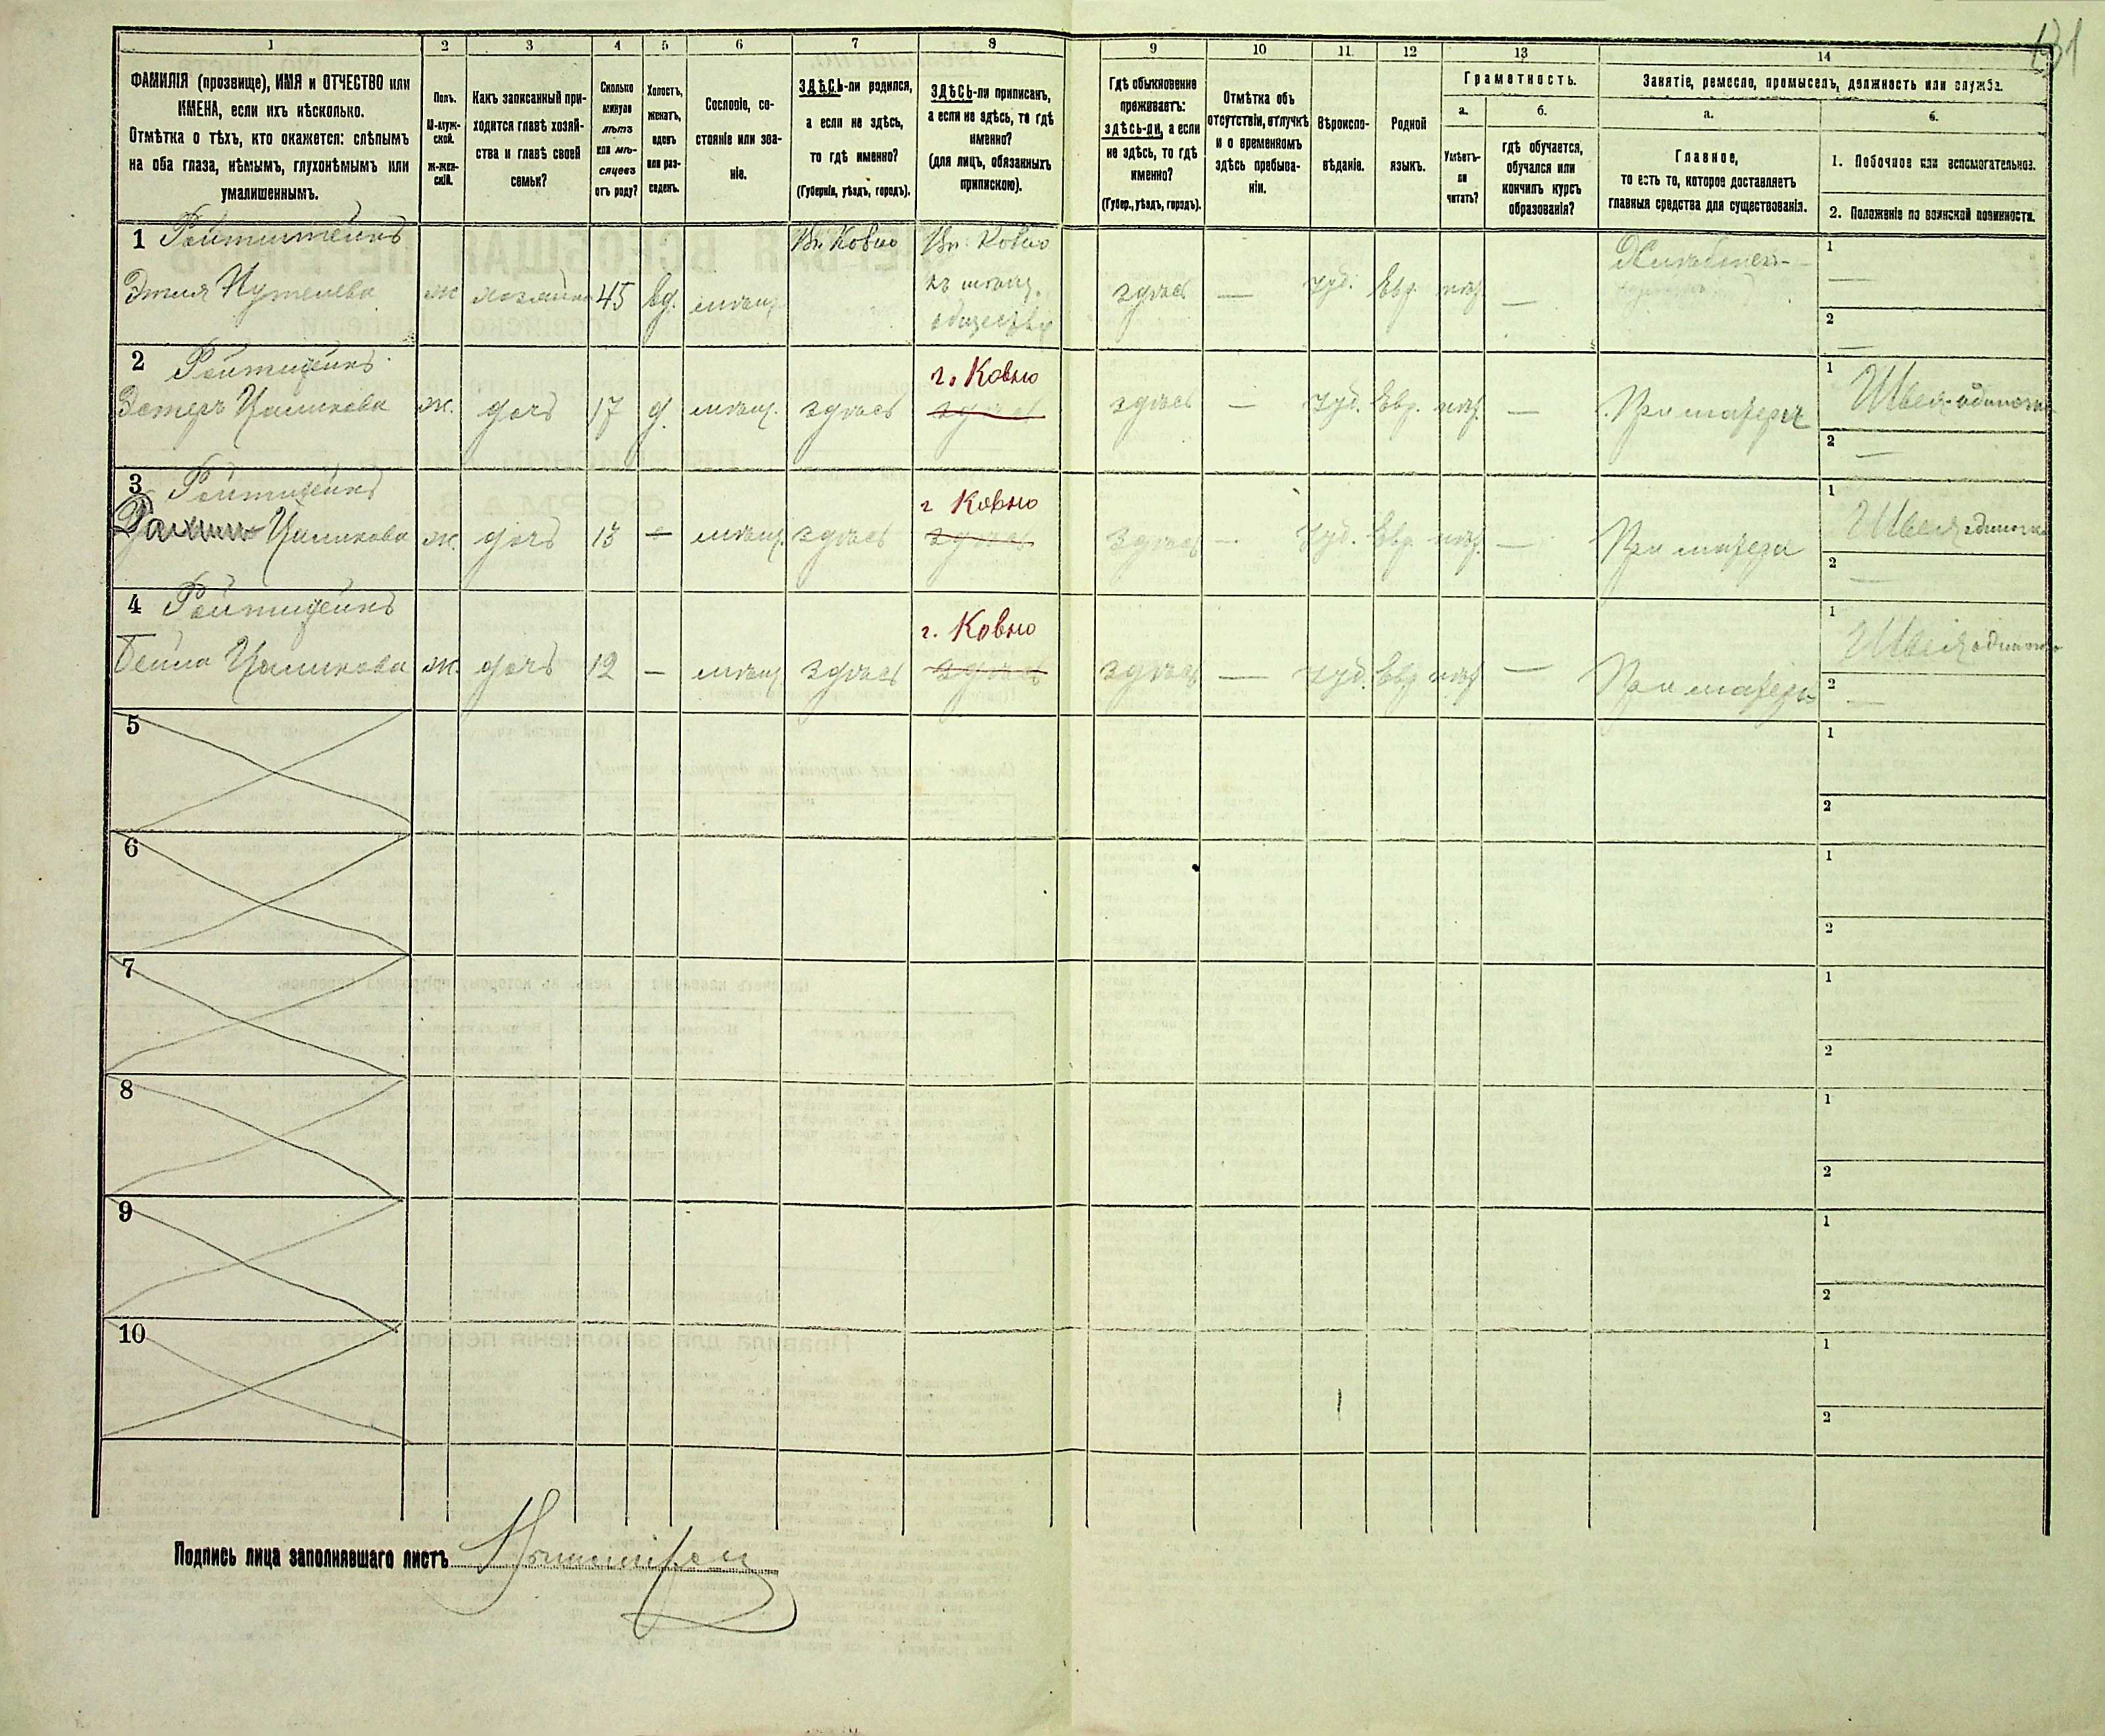 131
1
2
3
4
5
6
7
8
9
10
11
12
13
14
ФАМИЛІЯ (прозвище), ИМЯ и ОТЧЕСТВО или
ИМЕНА, если ихъ нѣсколько.
Отмѣтка о тѣхъ, кто окажется: слѣпымъ
на оба глаза, нѣмымъ, глухонѣмымъ или
умалишеннымъ.
Полъ.
М-муж-
ской.
Ж-жен-
скій.
Какъ записанный при-
ходится главѣ хозяй-
ства и главѣ своей
семьи?
Сколько
минуло
лѣтъ
или мѣ-
сяцевъ
отъ роду?
Холостъ,
женатъ,
вдовъ
или раз-
веденъ.
Сословіе, со-
стояніе или зва-
ніе.
ЗДѢСЬ-ли родился,
а если не здѣсь,
то гдѣ именно?
(Губернія, уѣздъ, городъ).
ЗДѢСЬ-ли приписанъ,
а если не здѣсь, то гдѣ
именно?
(для лицъ, обязанныхъ
припискою).
Гдѣ обыкновенно
проживаетъ:
здѣсь-ли, а если
не здѣсь, то гдѣ
именно?
(Губер., уѣздъ, городъ).
Отмѣтка объ
отсутствіи, отлучкѣ
и о временномъ
здѣсь пребыва-
ніи.
Вѣроиспо-
вѣданіе.
Родной
языкъ.
Грамотность.
а.
Умѣетъ-
ли
читать?
б.
гдѣ обучается,
обучался или
кончилъ курсъ
образованія?
Занятіе, ремесло, промыселъ, должность или служба.
а.
Главное,
то есть то, которое доставляетъ
главныя средства для существованія.
б.
1. Побочное или вспомогательное.
2. Положеніе по воинской повинности.
1
Этля
ж хозяйка 45 вд. мѣщ.
Въ Ковно
Въ Ковно
къ мѣщ.
обществу
здѣсь — Іуд. Евр. нѣт. —
1
—
2
—
2 Ройтштейнъ
Эстеръ Цаликова ж. дочь 17 д. мѣщ. здѣсь
г. Ковно
здѣсь
здѣсь — Іуд. Евр. нѣт. — При матери
1 Швея одиночка
2
—
3 Ройтштейнъ
Цаликова ж. дочь 13 — мѣщ. здѣсь
г Ковно
здѣсь
здѣсь — Іуд. Евр. нѣт. — При матери
1 Швея одиночка
2
—
4 Ройтштейнъ
Бейла Цаликова ж. дочь 12 — мѣщ здѣсь
г. Ковно
здѣсь
здѣсь — Іуд. Евр нѣт — При матери
1 Швея одиночка
2
—
5
1
2
6
1
2
7
1
2
8
1
2
9
1
2
10
1
2
Подпись лица заполнявшаго листъ